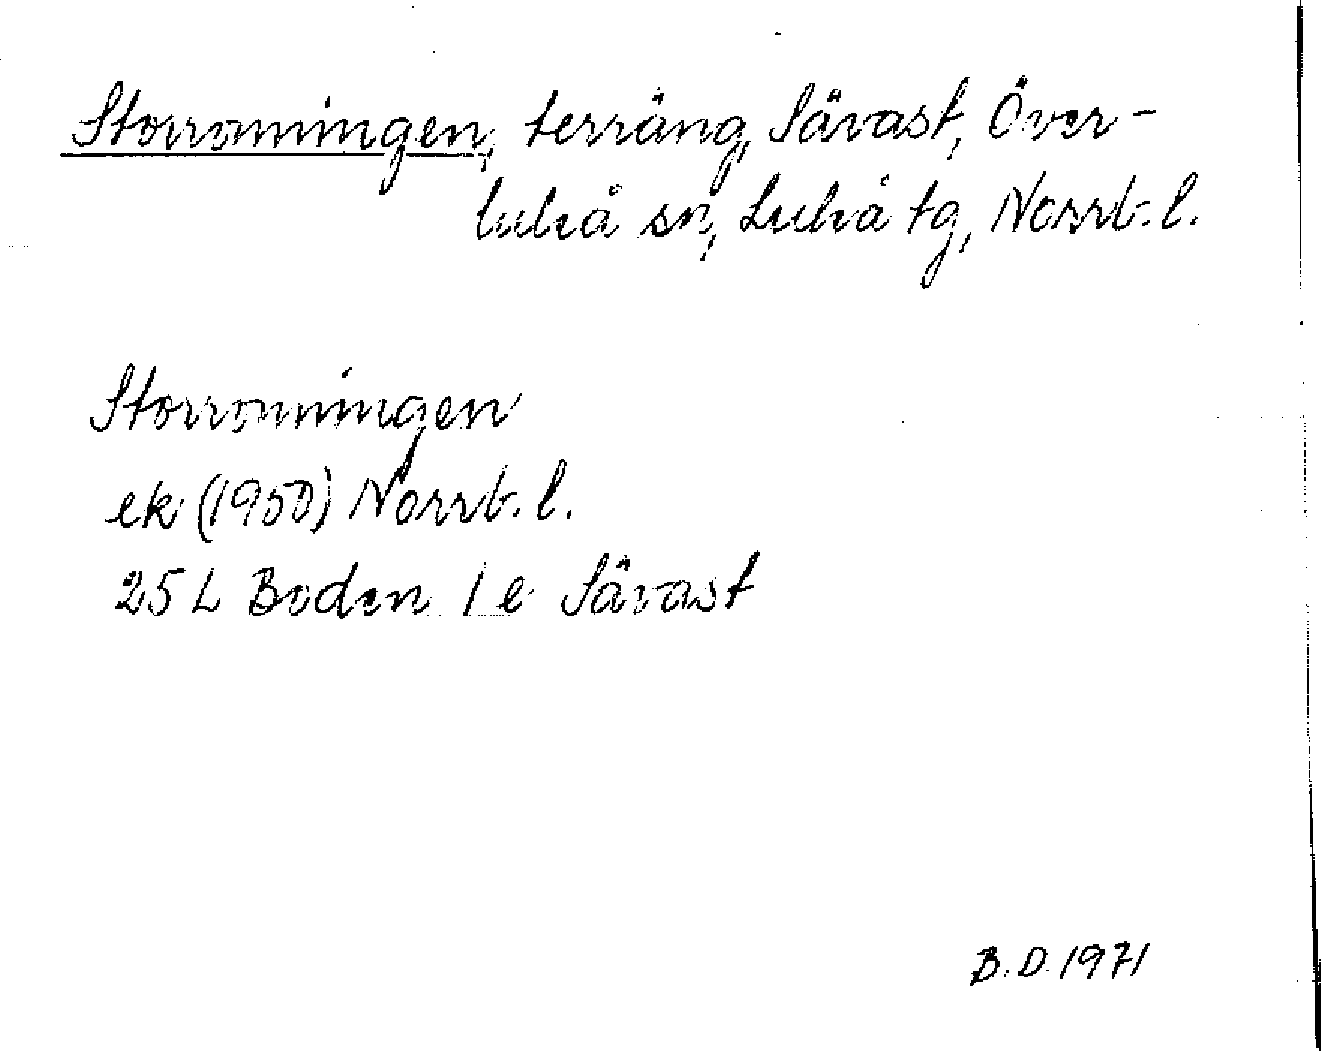 Storronningen, terräng, Sävast, Över-
luleå sn, Luleå tg, Norrb. l.
Storronningen
ek (1950) Norrb. l.
25 L Boden 1 e Sävast
B.D. 1971